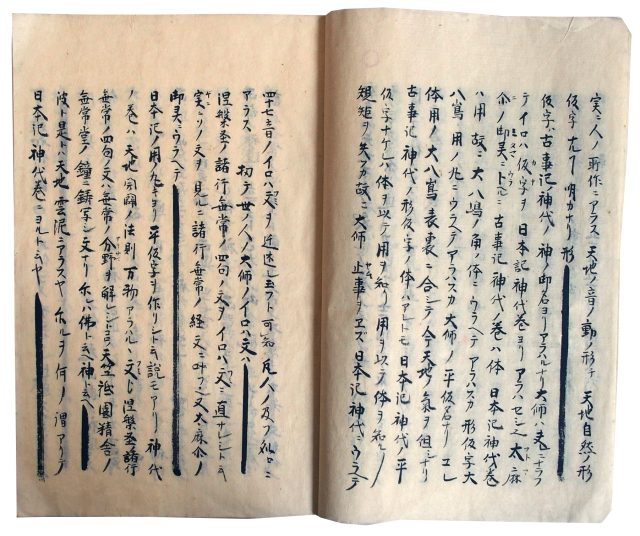 実ニ人ノ所作ニアラス天地ノ音ノ動ノ形チ天地自然ノ形
仮字尤明カナリ形
仮字ハ古事記ノ神代ノ神ノ御名ヨリアラハルナリ大師ハ是ニナラフ
テイロハ仮字ヲ日本記神代巻ヨリアラハセシハ太麻
ノ御ニトヘニ古事記神代ノ巻ハ体日本記神代巻
ハ用故ニ大八嶌ノ角ノ体ニウラヘテアラハスカ形仮字大
八嶌用ノ丸ニウラヘテアラハスカ大師ノ平仮名ナリ
体用ノ大八嶌表裏ニ合シテ今天地ノ気ヲ但シナリ
古事記神代ノ形仮字ノ体ハアレトモ日本記神代ノ平
仮字ナケレハ体ヲ以テ用ヲ知リ用ヲ以テ体ヲ知ル
規矩ヲ失フカ故ニ大師止事ヲエズ日本記神代ニウラヘテ
四十七音ノイロハ文ヲ述玉フト可知凡人ノ及フ処ロニ
アラス扨テ世ノ人ノ大師ノイロハ文ハ
涅槃ノ諸行無常ノ四句ノ文ヲイロハ文ニ直ナレシト云
実ニソノ文ヲ見ルニ諸行無常ノ経文ニ叶フ又太麻ノ
御ニウラヘテ
日本記ノ用ノ丸ヨリ平仮字ヲ作リシト云説モアリ神代
ノ巻ハ天地開ノ法則万物アラハルノ文ト涅槃諸行
無常ノ四句ノ文ハ無常ノ分野ヲ解シ天竺祇園精舎ノ
無常堂ノ鐘ニ鋳写シ文ナリハ佛ト云ハ神ト云ヘ
波ト是トハ天地雲泥ニアラスヤヲ何ノ謂アリテ
日本記神代巻ニヨルト云ヤ